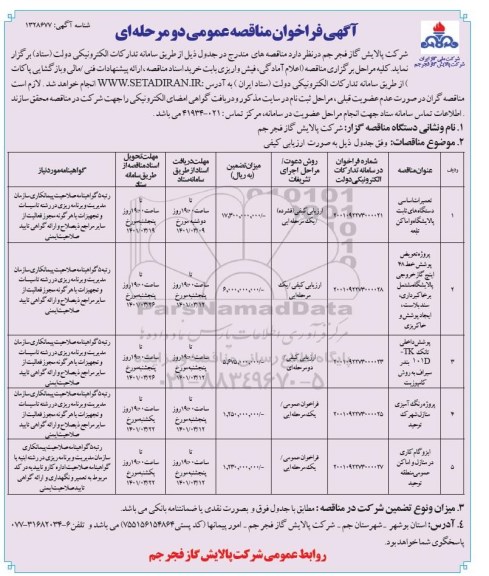 شناسه آگهی: ۱۳۲۸۶۷۷
آگهی فراخوان مناقصه عمومی دو مرحله‌ای
شرکت ملی گاز ایران
شرکت پالایش گاز فجر جم
شرکت پالایش گاز فجر جم درنظر دارد مناقصه های مندرج در جدول ذیل از طریق سامانه تدارکات الکترونیکی دولت (ستاد) برگزار
نماید. کلیه مراحل برگزاری مناقصه (اعلام آمادگی، فیش واریزی بابت خرید اسناد مناقصه، ارائه پیشنهادات فنی/مالی و بازگشایی پاکات
) از طریق سامانه تدارکات الکترونیکی دولت (ستاد ایران) به آدرس :WWW.SETADIRAN.IR انجام خواهد شد. لازم است
مناقصه گران در صورت عدم عضویت قبلی، مراحل ثبت نام در سایت مذکور و دریافت گواهی امضای الکترونیکی را جهت شرکت در مناقصه محقق سازند
. اطلاعات تماس سامانه ستاد جهت انجام مراحل عضویت در سامانه، مرکز تماس: ۰۲۱-۴۱۹۳۴ می باشد.
۱. نام و نشانی دستگاه مناقصه گزار: شرکت پالایش گاز فجر جم
۲. موضوع مناقصات: وفق جدول ذیل به صورت ارزیابی کیفی
ردیف | عنوان مناقصه | شماره فراخوان در سامانه تدارکات الکترونیکی دولت | روش دعوت/ مراحل اجرای تشریفات | میزان تضمین (به ریال) | مهلت دریافت اسناد از طریق سامانه ستاد | مهلت تحویل اسناد مناقصه از طریق سامانه ستاد | گواهینامه مورد نیاز
۱ | تعمیرات اساسی دستگاه‌های ثابت پالایشگاه و اماکن تابعه | ۲۰۰۱۰۹۲۲۷۳۰۰۰۰۲۱ | ارزیابی کیفی (فشرده) /یک مرحله‌ایی | ۱۷,۳۰۰,۰۰۰,۰۰۰/- | تا ساعت ۱۹:۰۰ روز دوشنبه مورخ ۱۴۰۱/۰۳/۰۹ | تا ساعت ۱۹:۰۰ روز پنجشنبه مورخ ۱۴۰۱/۰۳/۱۹ | رتبه ۵ گواهینامه صلاحیت پیمانکاری سازمان مدیریت و برنامه ریزی در رشته تاسیسات و تجهیزات یا هر گونه مجوز فعالیت از سایر مراجع ذیصلاح و ارائه گواهی تایید صلاحیت ایمنی
۲ | پروژه تعویض پوشش خط ۴۸ اینچ گاز خروجی پالایشگاه مشتمل بر خاکبرداری، سندبلاست، ایجاد پوشش و خاکریزی | ۲۰۰۱۰۹۲۲۷۳۰۰۰۰۲۸ | ارزیابی کیفی /یک مرحله‌ایی | ۶,۰۰۰,۰۰۰,۰۰۰/- | تا ساعت ۱۹:۰۰ روز پنجشنبه مورخ ۱۴۰۱/۰۳/۱۲ | تا ساعت ۱۹:۰۰ روز پنجشنبه مورخ ۱۴۰۱/۰۳/۲۶ | رتبه ۵ گواهینامه صلاحیت پیمانکاری سازمان مدیریت و برنامه ریزی در رشته تاسیسات و تجهیزات یا هر گونه مجوز فعالیت از سایر مراجع ذیصلاح و ارائه گواهی تایید صلاحیت ایمنی
۳ | پوشش داخلی تانک TK-101D بندر سیراف به روش کامپوزیت | ۲۰۰۱۰۹۲۲۷۳۰۰۰۰۲۳ | ارزیابی کیفی/ دو مرحله‌ایی | ۵,۶۷۵,۰۰۰,۰۰۰/- | تا ساعت ۱۹:۰۰ روز پنجشنبه مورخ ۱۴۰۱/۰۳/۱۲ | تا ساعت ۱۹:۰۰ روز پنجشنبه مورخ ۱۴۰۱/۰۳/۲۶ | رتبه ۵ گواهینامه صلاحیت پیمانکاری سازمان مدیریت و برنامه ریزی در رشته تاسیسات و تجهیزات یا هر گونه مجوز فعالیت از سایر مراجع ذیصلاح و ارائه گواهی تایید صلاحیت ایمنی
۴ | پروژه رنگ آمیزی منازل شهرک توحید | ۲۰۰۱۰۹۲۲۷۳۰۰۰۰۲۵ | فراخوان عمومی/ یک مرحله‌ایی | ۱,۲۵۰,۰۰۰,۰۰۰/- | تا ساعت ۱۹:۰۰ روز پنجشنبه مورخ ۱۴۰۱/۰۳/۱۲ | تا ساعت ۱۹:۰۰ روز یکشنبه مورخ ۱۴۰۱/۰۳/۲۲ | رتبه ۵ گواهینامه صلاحیت پیمانکاری سازمان مدیریت و برنامه ریزی در رشته تاسیسات و تجهیزات یا هر گونه مجوز فعالیت از سایر مراجع ذیصلاح و ارائه گواهی تایید صلاحیت ایمنی
۵ | ایزوگام کاری در منازل و اماکن عمومی منطقه توحید | ۲۰۰۱۰۹۲۲۷۳۰۰۰۰۲۷ | فراخوان عمومی/ یک مرحله‌ایی | ۱,۲۳۰,۰۰۰,۰۰۰/- | تا ساعت ۱۹:۰۰ روز پنجشنبه مورخ ۱۴۰۱/۰۳/۱۲ | تا ساعت ۱۹:۰۰ روز یکشنبه مورخ ۱۴۰۱/۰۳/۲۲ | رتبه ۵ گواهینامه صلاحیت پیمانکاری سازمان مدیریت و برنامه ریزی در رشته ابنیه یا گواهینامه صلاحیت اداره کار و تایید به در کد مربوط به تعمیر و نگهداری و ارائه گواهی تایید صلاحیت ایمنی
ParsNamadData
۰۲۱-۸۸۳۴۹۶۷۰-۵
۳. میزان و نوع تضمین شرکت در مناقصه: مطابق با جدول فوق و بصورت نقدی یا ضمانتنامه بانکی می باشد.
۴. آدرس: استان بوشهر _شهرستان جم_ شرکت پالایش گاز فجر جم- امور پیمانها (کد پستی ۷۵۵۱۵۶۱۵۴۸۶۴) می باشد و تلفن ۶-۳۱۶۸۲۰۳۴-۰۷۷
پاسخگوی شما خواهد بود.
روابط عمومی شرکت پالایش گاز فجر جم